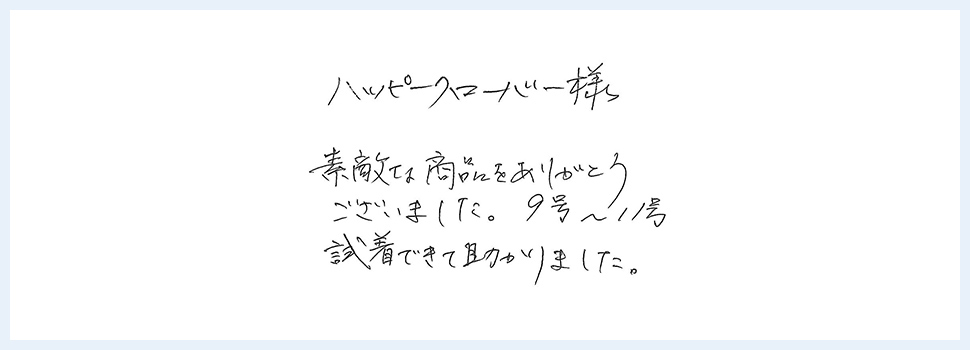 ハッピークローバー様
素敵な商品をありがとう
ございました。9号〜11号
試着できて助かりました。